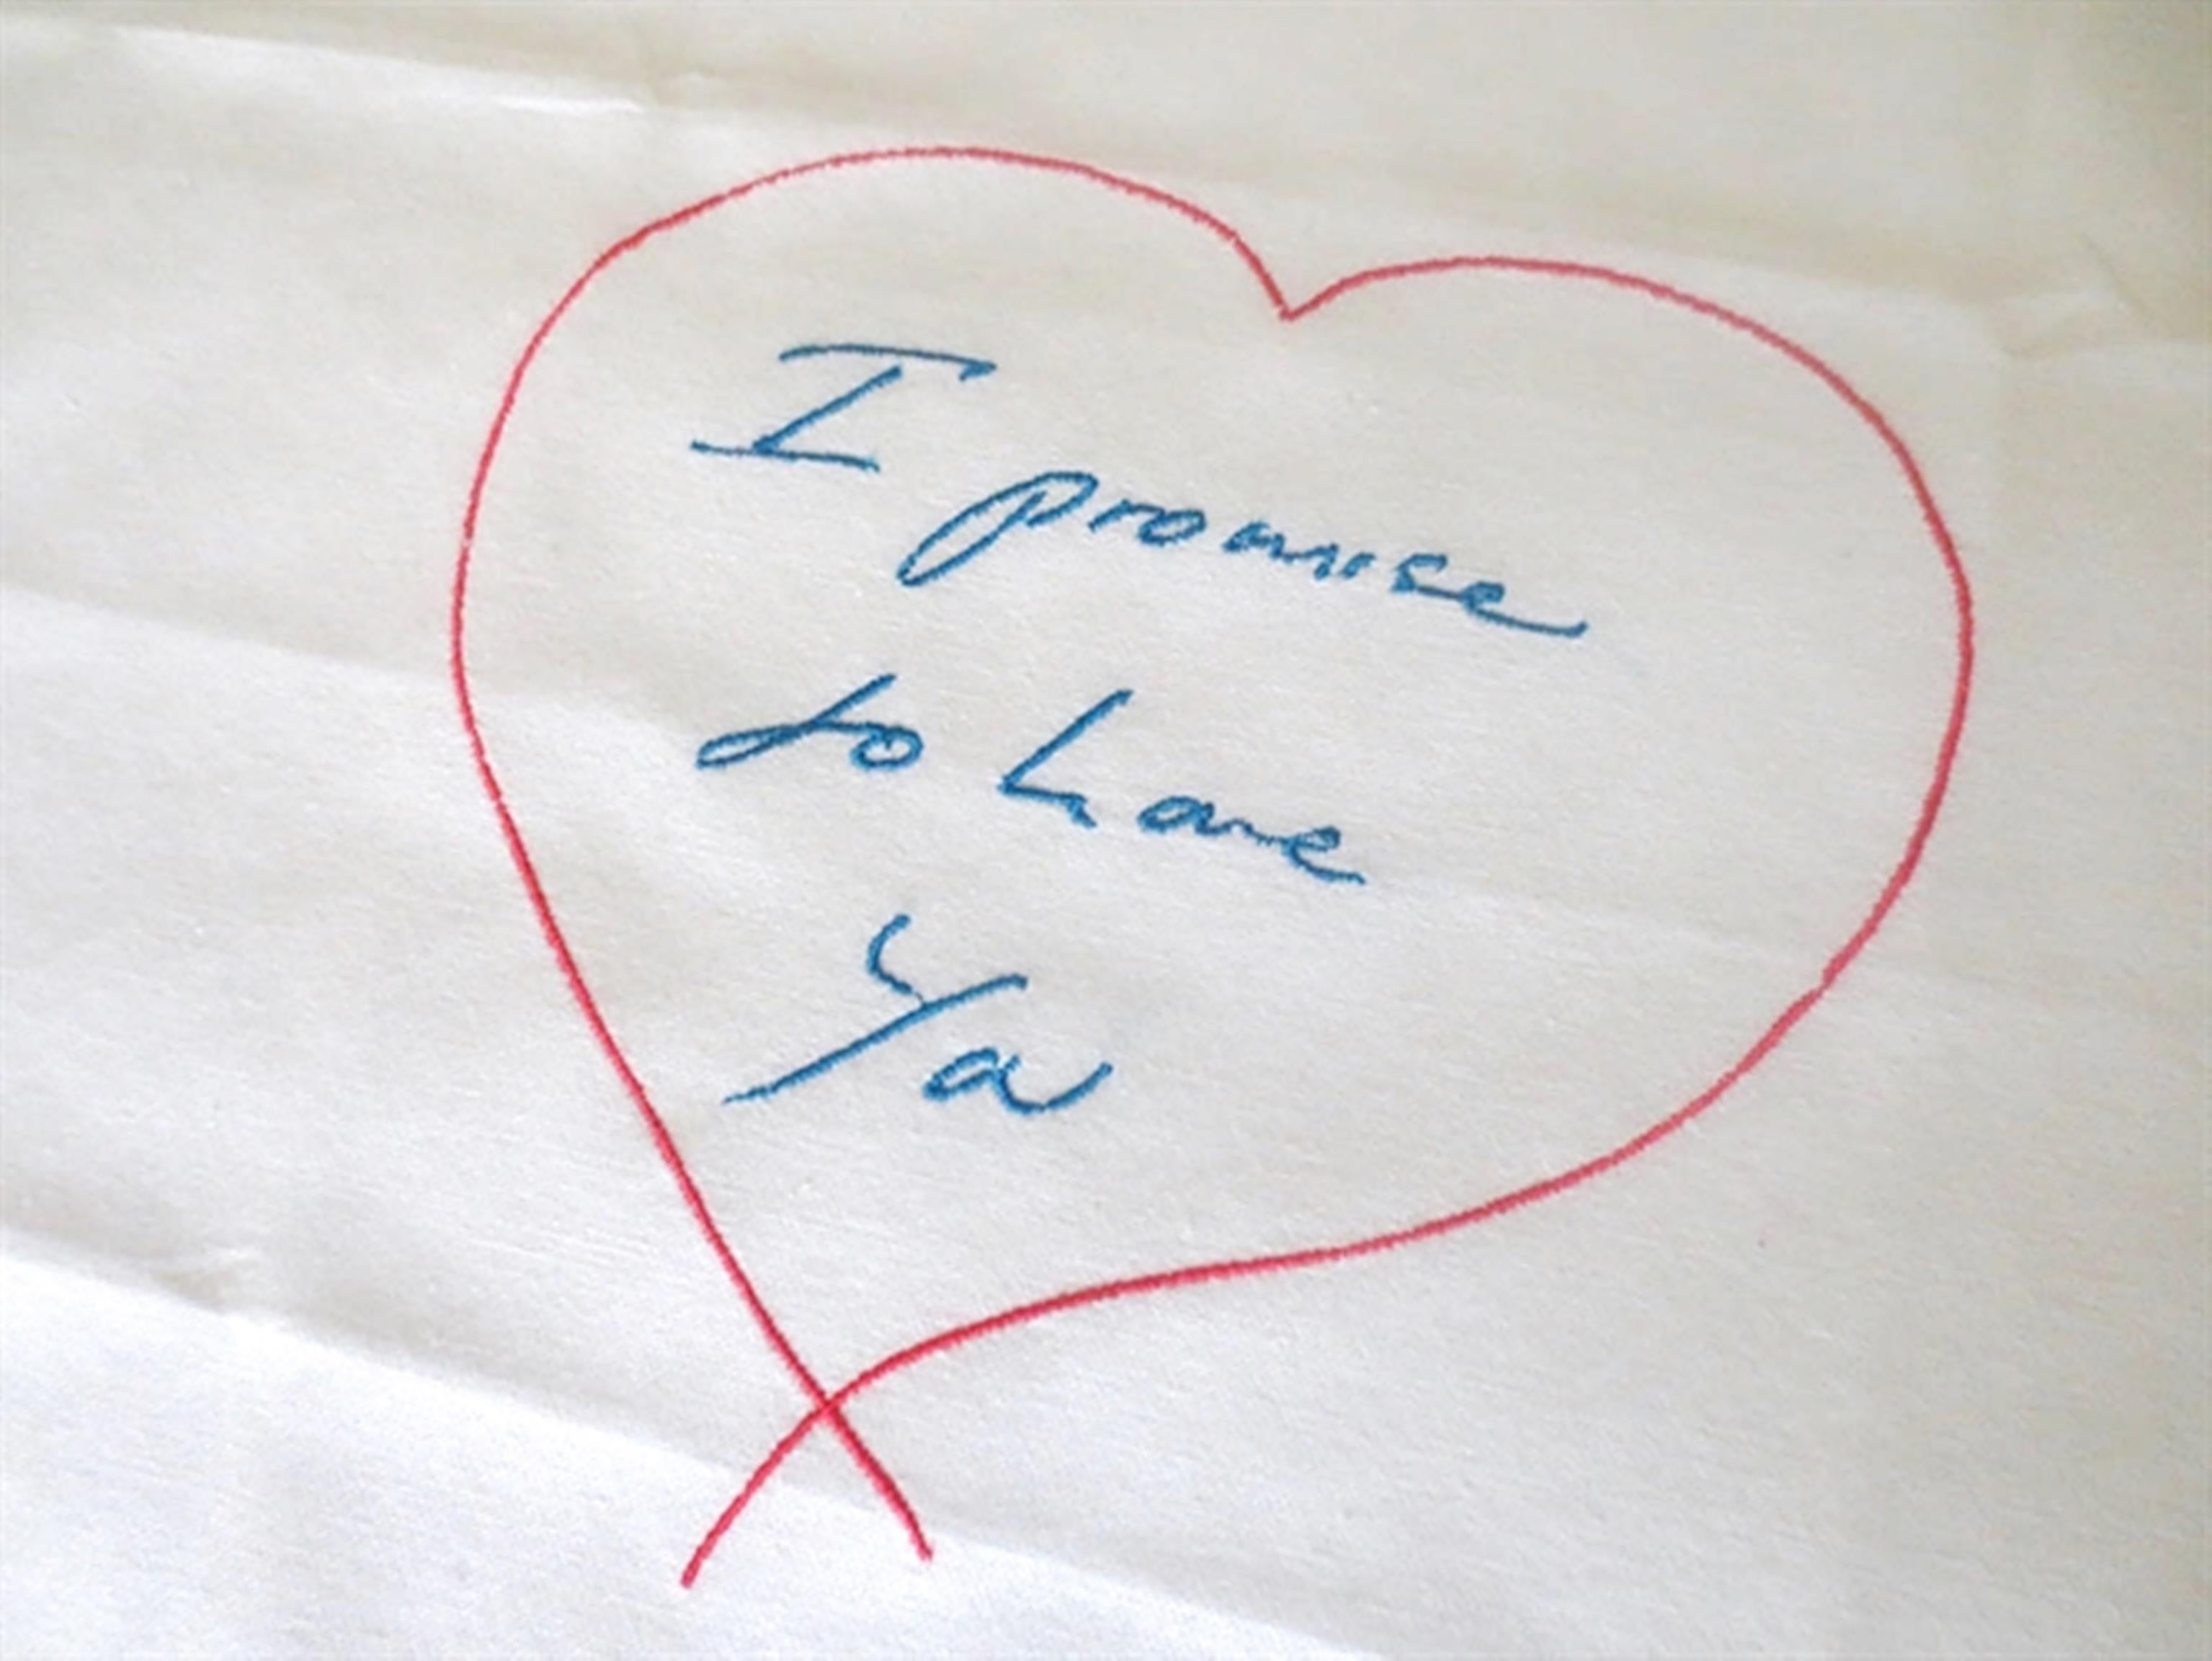 I promise
to Love
ya